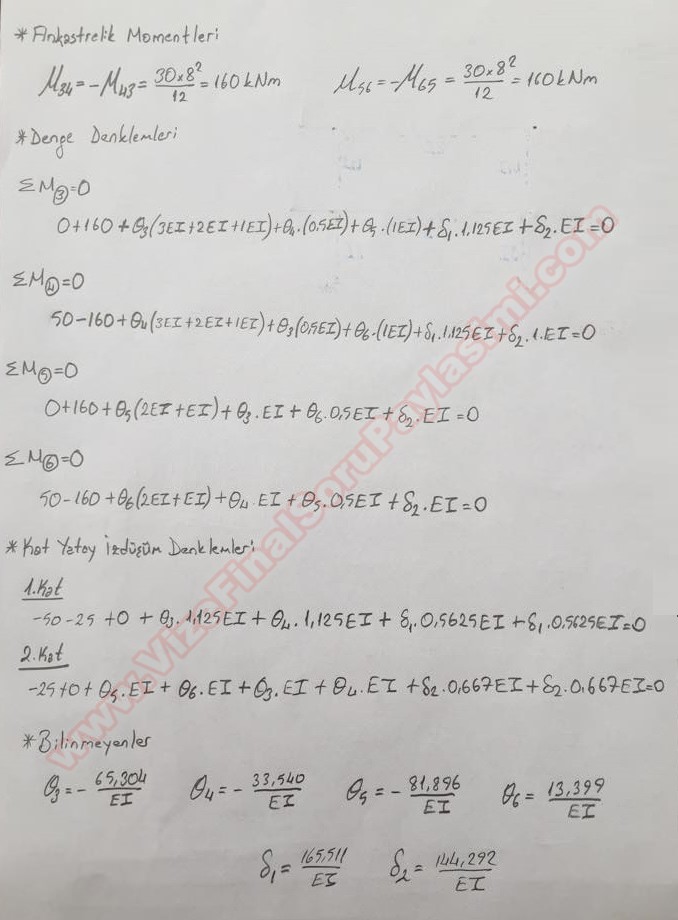 * Ankastrelik Momentleri
M₃₄ = -M₄₃ = 30x8²/12 = 160 kNm M₅₆ = -M₆₅ = 30x8²/12 = 160 kNm
* Denge Denklemleri
ΣM③=0
0+160+θ₃(3EI+2EI+1EI)+θ₄.(0.5EI)+θ₅.(1EI)+δ₁.1,125EI+δ₂.EI=0
ΣM④=0
50-160+θ₄(3EI+2EI+1EI)+θ₃(0,5EI)+θ₆.(1EI)+δ₁.1,125EI+δ₂.1.EI=0
ΣM⑤=0
0+160+θ₅(2EI+EI)+θ₃.EI+θ₆.0,5EI+δ₂.EI=0
ΣM⑥=0
50-160+θ₆(2EI+EI)+θ₄.EI+θ₅.0,5EI+δ₂.EI=0
* Kat Yatay İzdüşüm Denklemleri
1.Kat
-50-25+0+θ₃.1,125EI+θ₄.1,125EI+δ₁.0,5625EI+δ₁.0,5625EI=0
2.Kat
-25+0+θ₅.EI+θ₆.EI+θ₃.EI+θ₄.EI+δ₂.0,667EI+δ₂.0,667EI=0
* Bilinmeyenler
θ₃=-65,304/EI θ₄=-33,540/EI θ₅=-81,896/EI θ₆=13,399/EI
δ₁=165,511/EI δ₂=144,292/EI
www.VizeFinalSoruPaylasimi.com